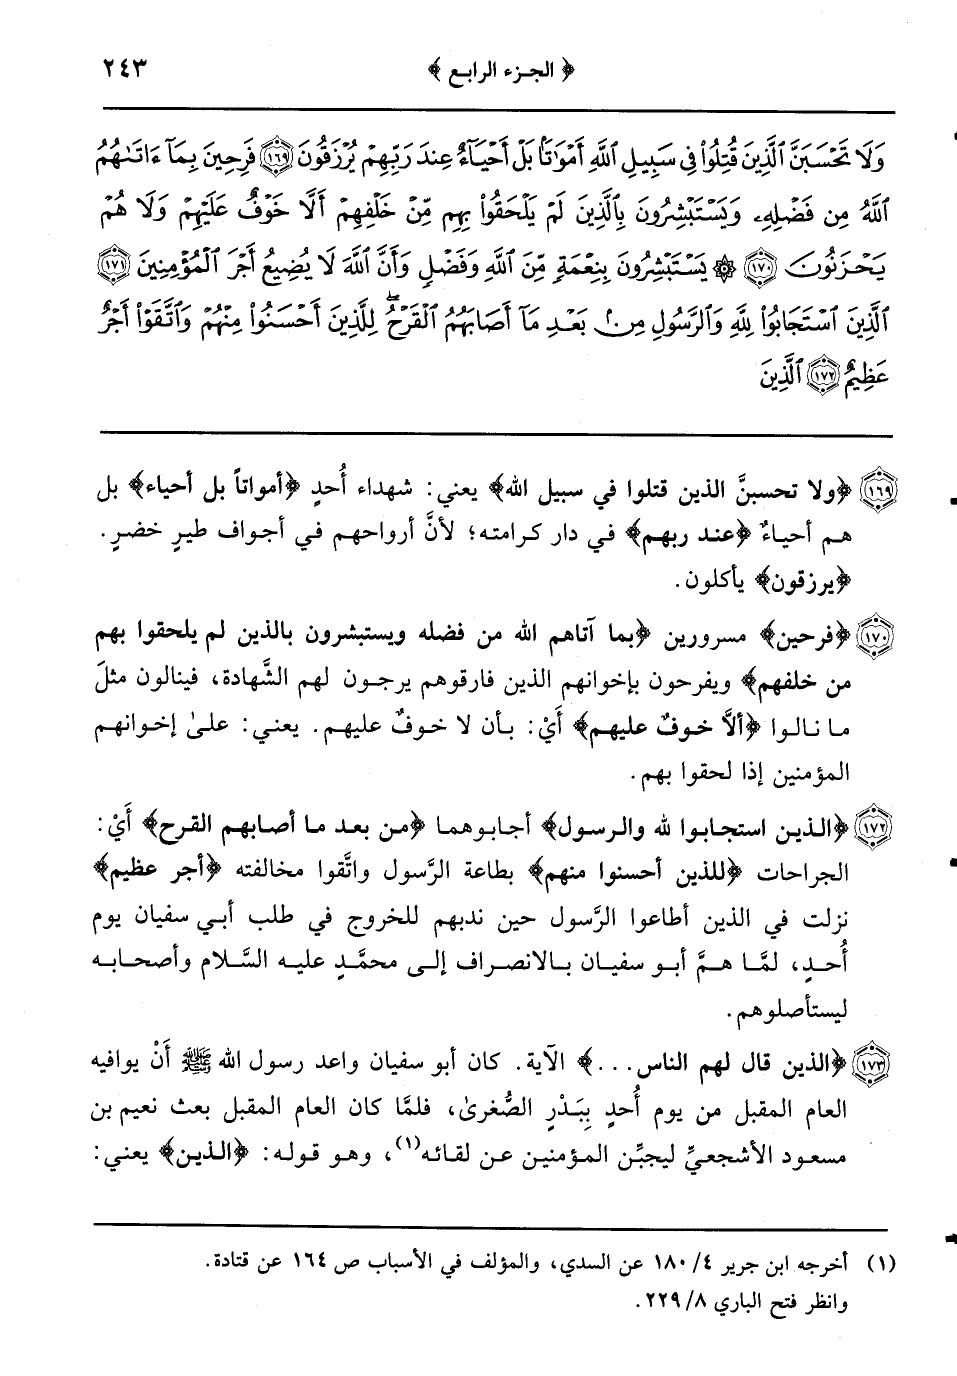 ﴿ الجزء الرابع ﴾ ٢٤٣
وَلَا تَحْسَبَنَّ ٱلَّذِينَ قُتِلُوا۟ فِى سَبِيلِ ٱللَّهِ أَمْوَٰتًۢا بَلْ أَحْيَآءٌ عِندَ رَبِّهِمْ يُرْزَقُونَ ١٦٩ فَرِحِينَ بِمَآ ءَاتَىٰهُمُ
ٱللَّهُ مِن فَضْلِهِۦ وَيَسْتَبْشِرُونَ بِٱلَّذِينَ لَمْ يَلْحَقُوا۟ بِهِم مِّنْ خَلْفِهِمْ أَلَّا خَوْفٌ عَلَيْهِمْ وَلَا هُمْ
يَحْزَنُونَ ١٧٠ ۞ يَسْتَبْشِرُونَ بِنِعْمَةٍ مِّنَ ٱللَّهِ وَفَضْلٍ وَأَنَّ ٱللَّهَ لَا يُضِيعُ أَجْرَ ٱلْمُؤْمِنِينَ ١٧١
ٱلَّذِينَ ٱسْتَجَابُوا۟ لِلَّهِ وَٱلرَّسُولِ مِنۢ بَعْدِ مَآ أَصَابَهُمُ ٱلْقَرْحُ ۚ لِلَّذِينَ أَحْسَنُوا۟ مِنْهُمْ وَٱتَّقَوْا۟ أَجْرٌ
عَظِيمٌ ١٧٢ ٱلَّذِينَ
١٦٩ ﴿ولا تحسبنَّ الذين قتلوا في سبيل الله﴾ يعني: شهداء أُحدٍ ﴿أمواتاً بل أحياء﴾ بل
هم أحياءٌ ﴿عند ربهم﴾ في دار كرامته؛ لأنَّ أرواحهم في أجواف طيرٍ خضرٍ.
﴿يرزقون﴾ يأكلون.
١٧٠ ﴿فرحين﴾ مسرورين ﴿بما آتاهم الله من فضله ويستبشرون بالذين لم يلحقوا بهم
من خلفهم﴾ ويفرحون بإخوانهم الذين فارقوهم يرجون لهم الشَّهادة، فينالون مثلَ
ما نالوا ﴿ألاَّ خوفٌ عليهم﴾ أَيْ: بأن لا خوفٌ عليهم. يعني: علىٰ إخوانهم
المؤمنين إذا لحقوا بهم.
١٧٢ ﴿الذين استجابوا لله والرسول﴾ أجابوهما ﴿من بعد ما أصابهم القرح﴾ أَيْ:
الجراحات ﴿للذين أحسنوا منهم﴾ بطاعة الرَّسول واتَّقوا مخالفته ﴿أجر عظيم﴾
نزلت في الذين أطاعوا الرَّسول حين ندبهم للخروج في طلب أبي سفيان يوم
أُحدٍ، لمَّا همَّ أبو سفيان بالانصراف إلى محمَّدٍ عليه السَّلام وأصحابه
ليستأصلوهم.
١٧٣ ﴿الذين قال لهم الناس...﴾ الآية. كان أبو سفيان واعد رسول الله ﷺ أَنْ يوافيه
العام المقبل من يوم أُحدٍ بِبَدْرٍ الصُّغرىٰ، فلمَّا كان العام المقبل بعث نعيم بن
مسعود الأشجعيَّ ليجبِّن المؤمنين عن لقائه(١)، وهو قوله: ﴿الذين﴾ يعني:
(١) أخرجه ابن جرير ٤/ ١٨٠ عن السدي، والمؤلف في الأسباب ص ١٦٤ عن قتادة.
وانظر فتح الباري ٨/ ٢٢٩.